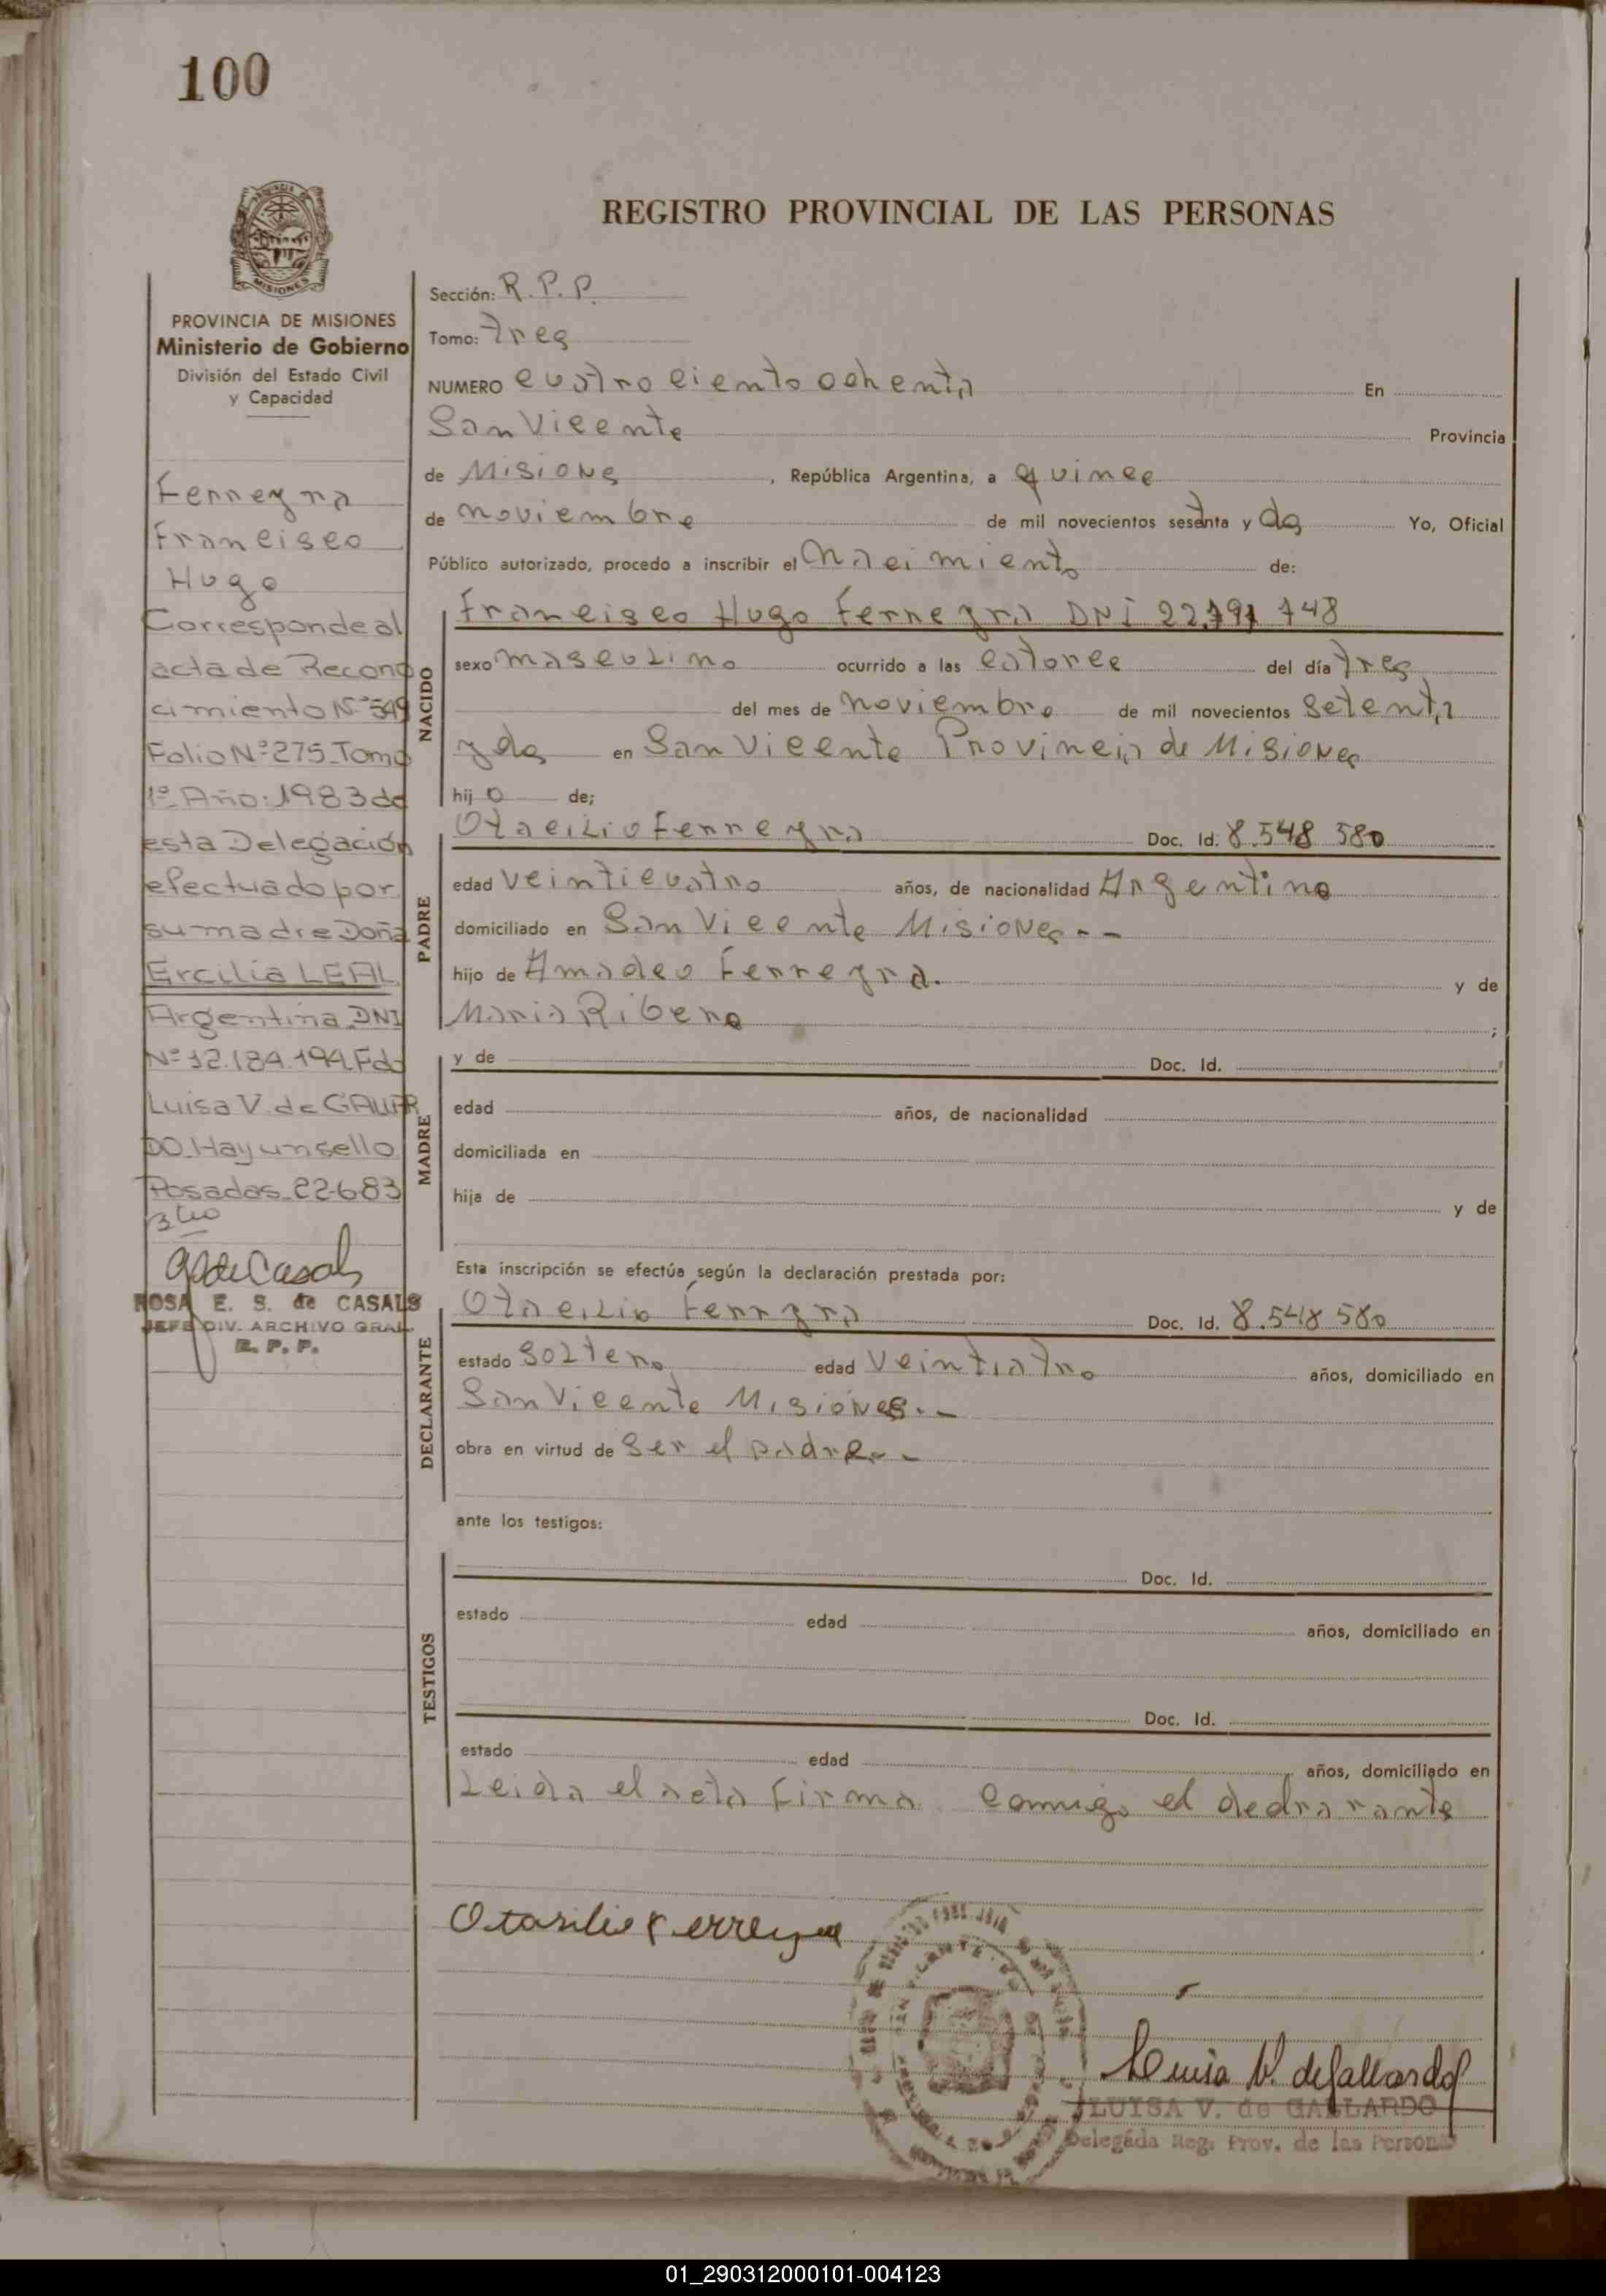 100
REGISTRO PROVINCIAL DE LAS PERSONAS
MISIONES
PROVINCIA DE MISIONES
Ministerio de Gobierno
División del Estado Civil
y Capacidad
Ferreyra
Francisco
Hugo
Corresponde al
acta de Recono
cimiento Nº 549
Folio Nº 275 Tomo
1º Año: 1983 de
esta Delegación
efectuado por
su madre Doña
Ercilia LEAL
Argentina DNI
Nº 12.184.194 Fdo
Luisa V. de GALLAR
DO Hay un sello
Posadas 22-6-83
ROSA E. S. de CASALS
JEFE DIV. ARCHIVO GRAL.
R. P. P.
Sección: R. P. P.
Tomo: tres
NUMERO cuatrociento ochenta En
San Vicente Provincia
de Misiones, República Argentina, a quince
de noviembre de mil novecientos sesenta y dos Yo, Oficial
Público autorizado, procedo a inscribir el nacimiento de:
NACIDO
Francisco Hugo Ferreyra DNI
sexo masculino ocurrido a las catorce del día tres
del mes de noviembre de mil novecientos setenta
y dos en San Vicente Provincia de Misiones
hij o de;
PADRE
Otacilio Ferreyra Doc. Id. 8.548 580
edad veinticuatro años, de nacionalidad Argentino
domiciliado en San Vicente Misiones--
hijo de Amadeo Ferreyra. y de
Maria Ribero ;
MADRE
y de Doc. Id.
edad años, de nacionalidad
domiciliada en
hija de y de
Esta inscripción se efectúa según la declaración prestada por:
DECLARANTE
Otacilio Ferryra Doc. Id. 8.548 580
estado soltero edad veintiatro años, domiciliado en
San Vicente Misiones.--
obra en virtud de ser el padre.--
ante los testigos:
TESTIGOS
Doc. Id.
estado edad años, domiciliado en
Doc. Id.
estado edad años, domiciliado en
Leida el acta firma comigo el declarante
Otasilio Ferreyra
Luisa V. de Gallardo
LUISA V. de GALLARDO
Delegada Reg. Prov. de las Personas
01_290312000101-004123